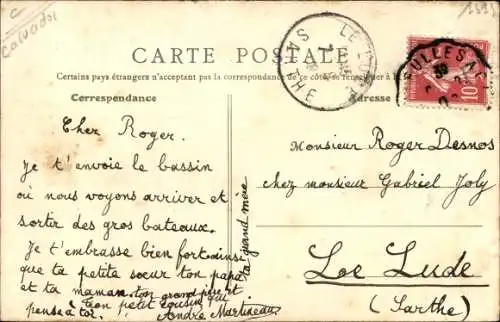 Calvados
CARTE POSTALE
Certains pays étrangers n'acceptant pas la correspondance de ce côté, se renseigner à la
Correspondance
Adresse
LE LUDE
SARTHE
10
Cher Roger.
Je t'envoie le bassin
où nous voyons arriver et
sortir des gros bateaux.
Je t'embrasse bien fort ainsi
que ta petite sœur ton papa
et ta maman ton grand père et
ta grand mère
Ton petit cousin qui
pense à toi.
André Martineau
Monsieur Roger Desnos
chez monsieur Gabriel Joly
Loe Lude
(Sarthe)